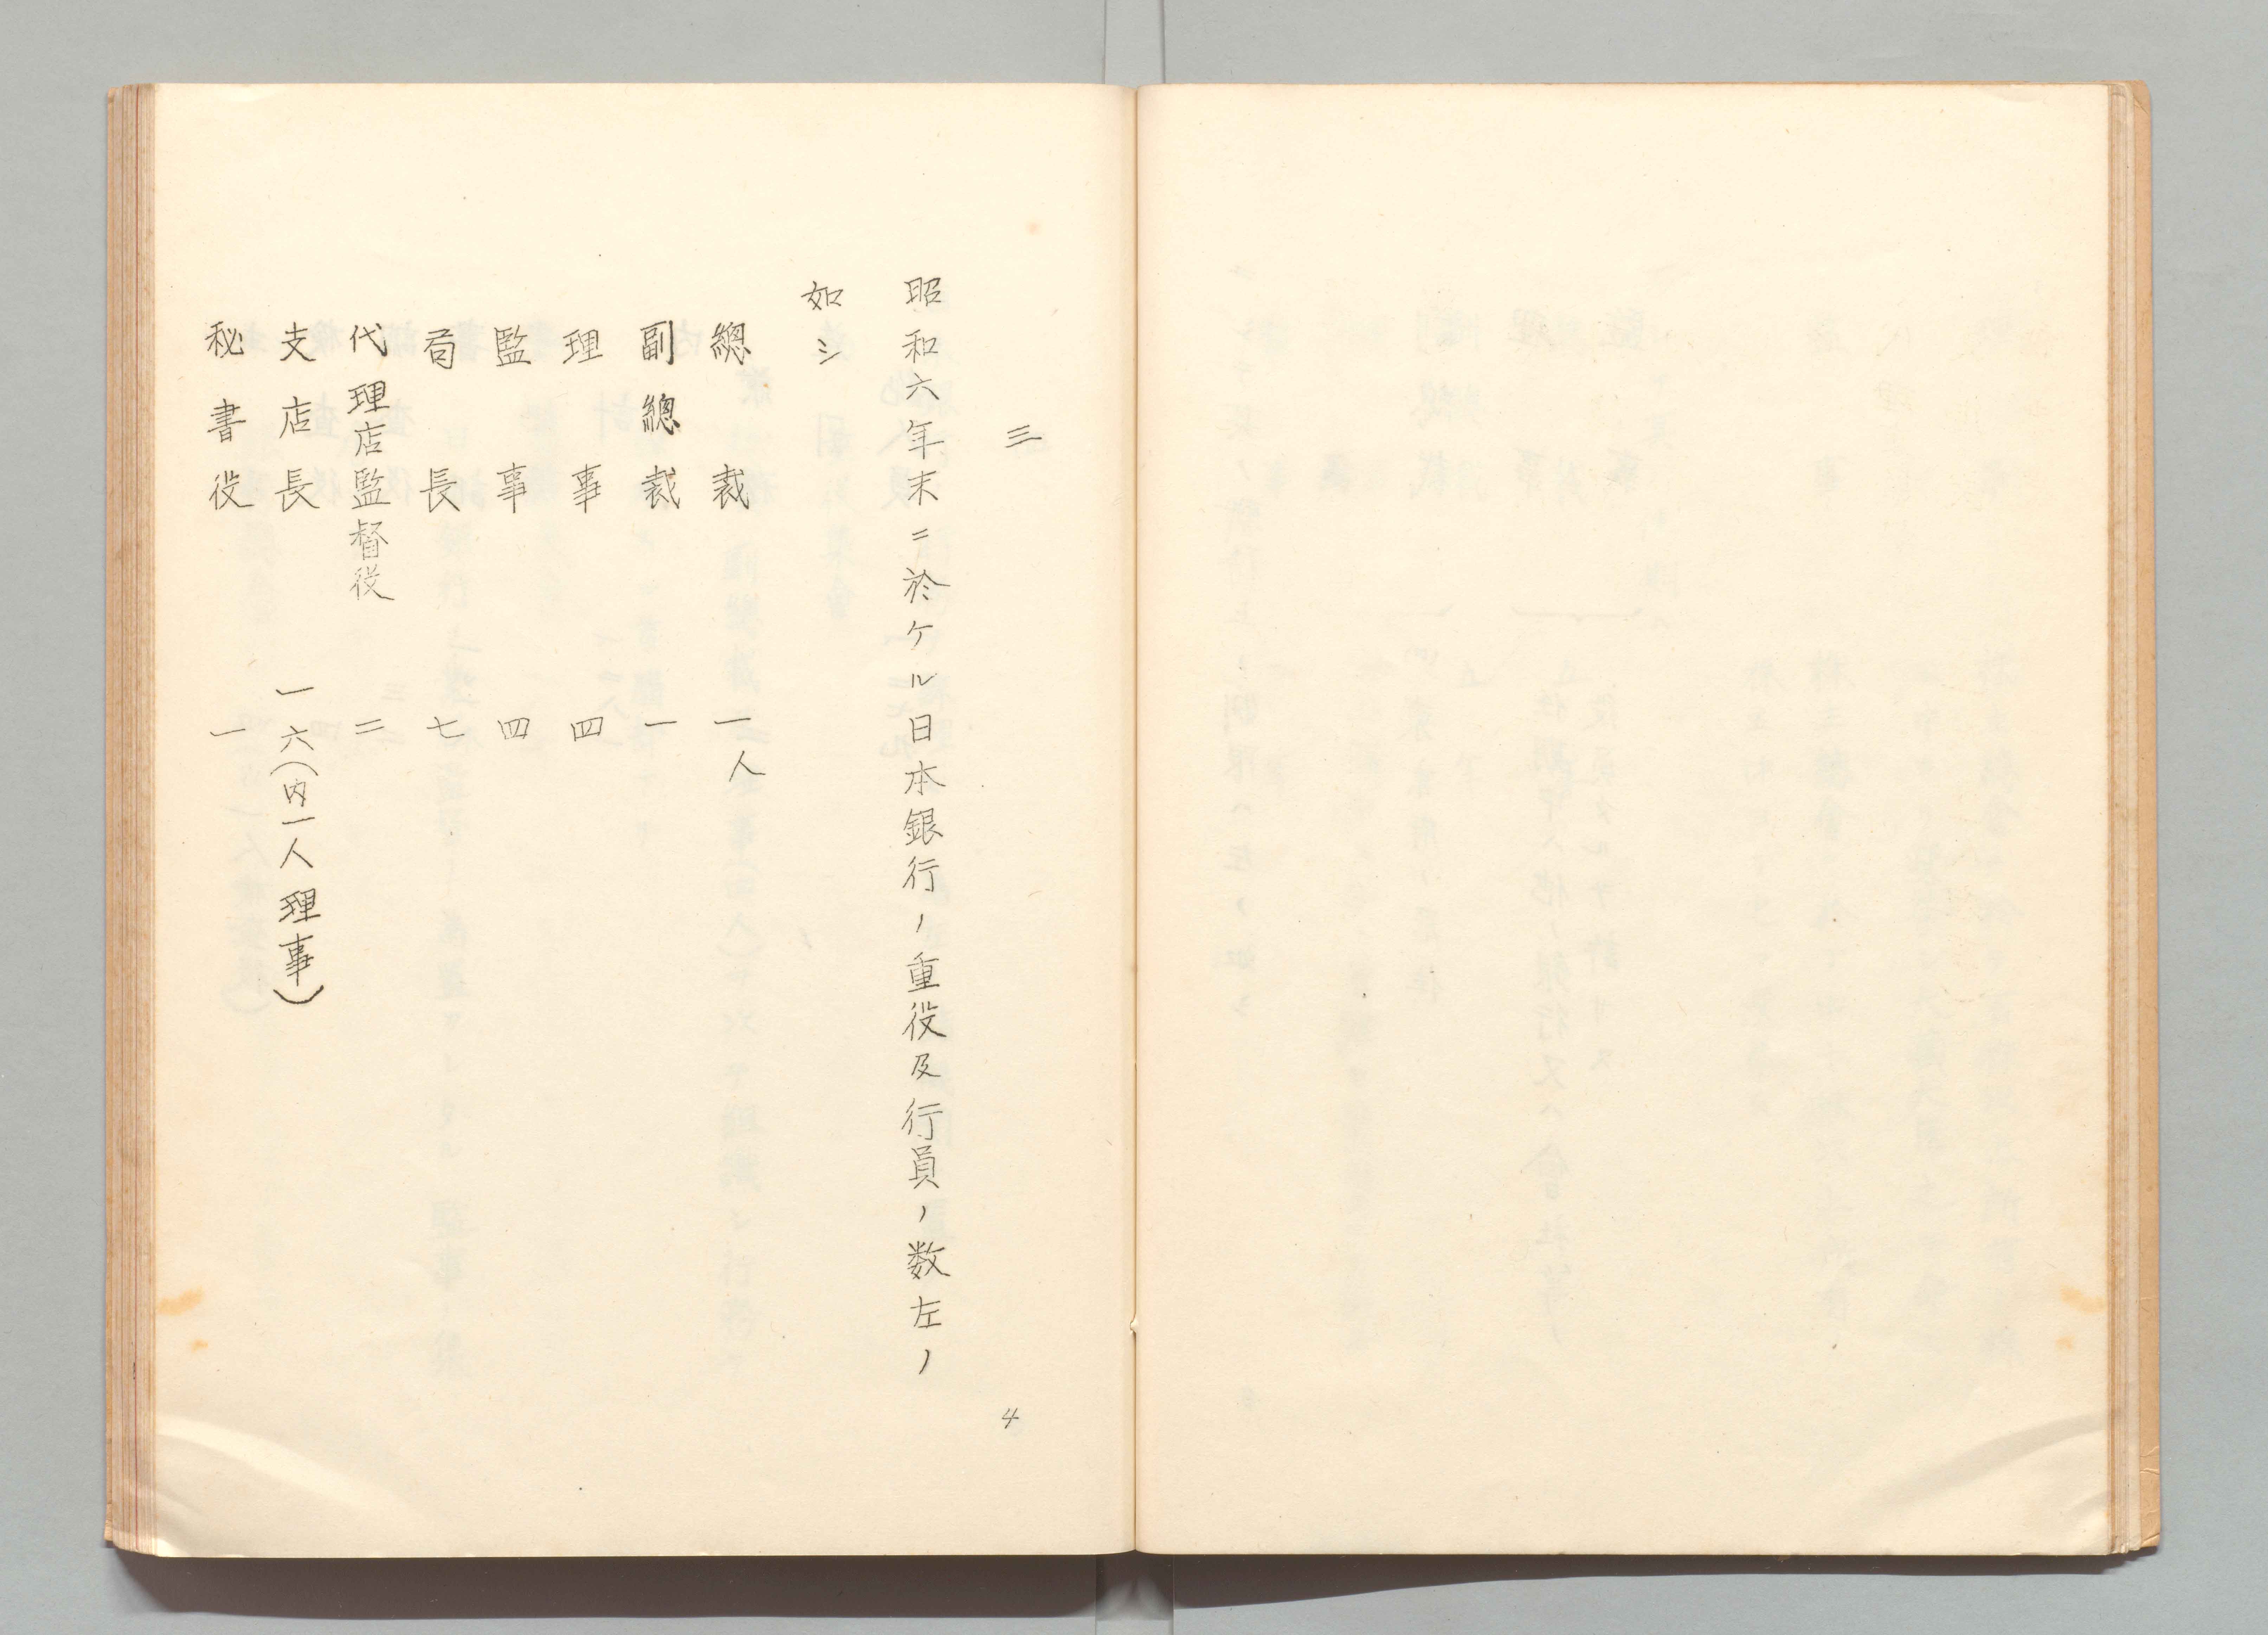 三
昭和六年末ニ於ケル日本銀行ノ重役及行員ノ数左ノ
如シ
總裁 一人
副總裁 一
理事 四
監事 四
局長 七
代理店監督役 二
支店長 一六(内一人理事)
秘書役 一
4